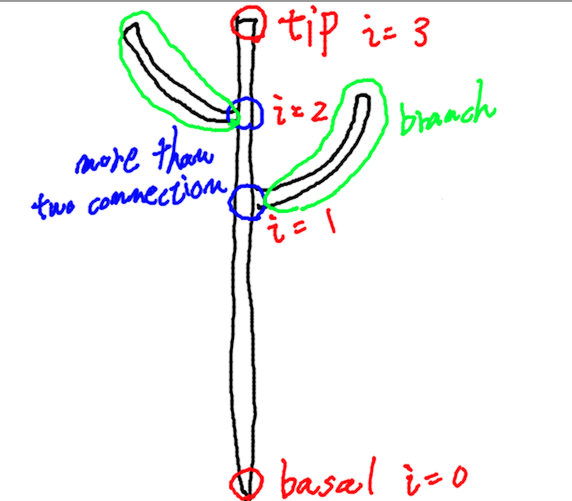 tip i=3
i=2
branch
more than
two connection
i=1
basal i=0